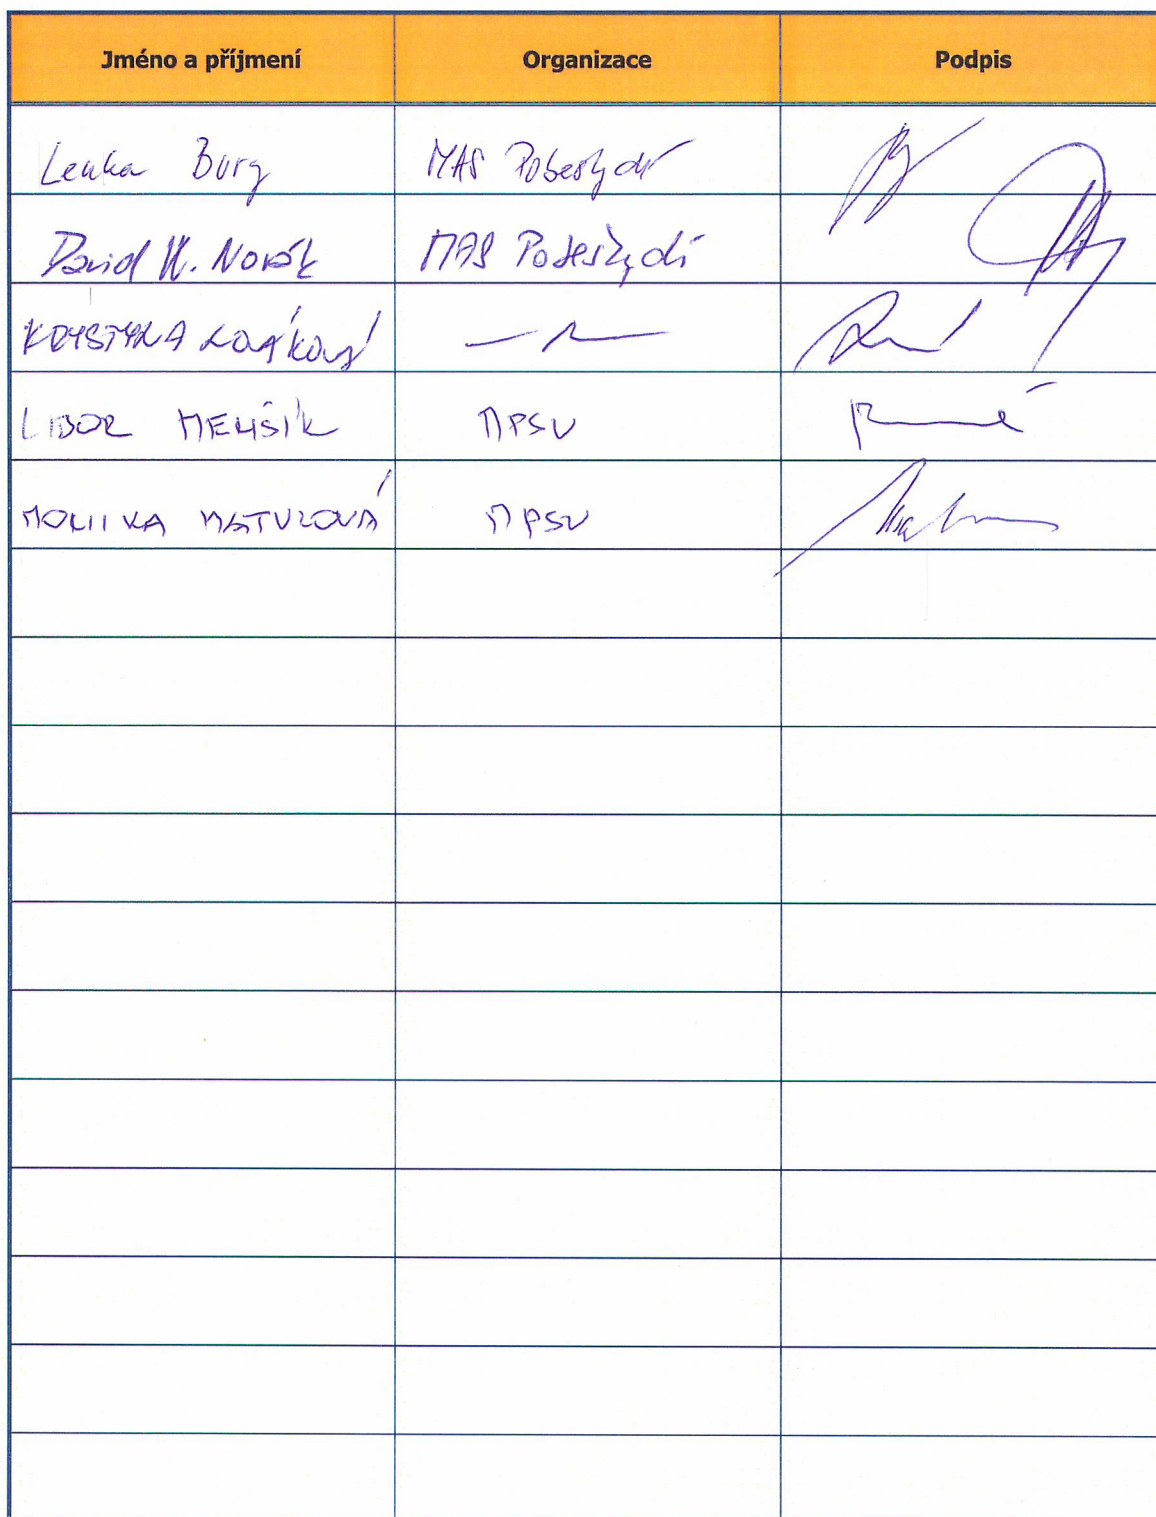 Jméno a příjmení Organizace Podpis
Lenka Burg MAS Pobeskydí
David K. Novák MAS Pobeskydí
KRYSTYNA NOVÁKOVÁ
LIBOR MENŠÍK MPSV
MONIKA MATUROVÁ MPSV